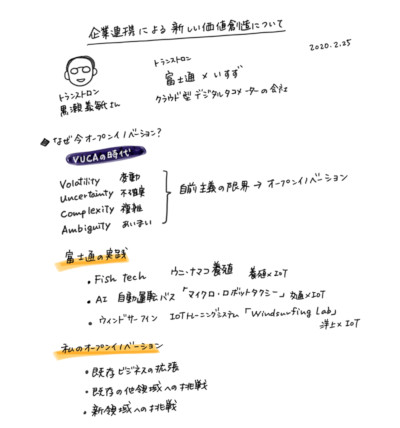 企業連携による新しい価値創造について
2020.2.25
トランストロン
黒瀬義敏さん
トランストロン
富士通×いすず
クラウド型デジタルタコメーターの会社
◆なぜ今オープンイノベーション?
VUCAの時代
Volatility 変動
Uncertainty 不確実
Complexity 複雑
Ambiguity あいまい
自前主義の限界→オープンイノベーション
富士通の実践
・Fish Tech ウニ・ナマコ養殖 養殖×IoT
・AI 自動運転バス「マイクロ・ロボットタクシー」交通×IoT
・ウィンドサーフィン IoTトレーニングシステム「Windsurfing Lab」
洋上×IoT
私のオープンイノベーション
・既存ビジネスの拡張
・既存の他領域への挑戦
・新領域への挑戦